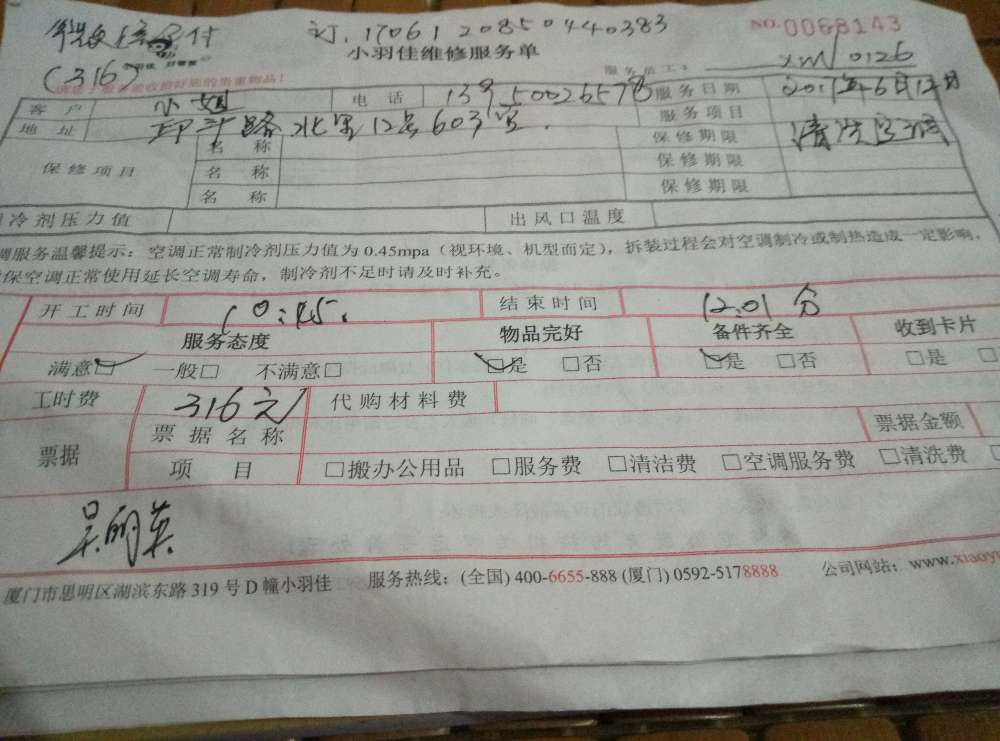 订.17061208504403​83 NO.0068143
小羽佳维修服务单
(316) 服务员工: xm/0126
客户 小姐 电话 13950026578 服务日期 2017年6月12日
地址 北里12号603室. 服务项目 清洗空调
保修项目 名称 保修期限
名称 保修期限
名称 保修期限
冷剂压力值 出风口温度
调服务温馨提示：空调正常制冷剂压力值为 0.45mpa（视环境、机型而定），拆装过程会对空调制冷或制热造成一定影响，
保空调正常使用延长空调寿命，制冷剂不足时请及时补充。
开工时间 10:45. 结束时间 12.01分
服务态度 物品完好 备件齐全 收到卡片
满意□ 一般□ 不满意□ □是 □否 □是 □否 □是 □
工时费 316元 代购材料费
票据 票据名称 票据金额
项目 □搬办公用品 □服务费 □清洁费 □空调服务费 □清洗费
吴明英
厦门市思明区湖滨东路 319 号 D 幢小羽佳 服务热线：(全国) 400-6655-888 (厦门) 0592-5178888 公司网站：www.xiaoy